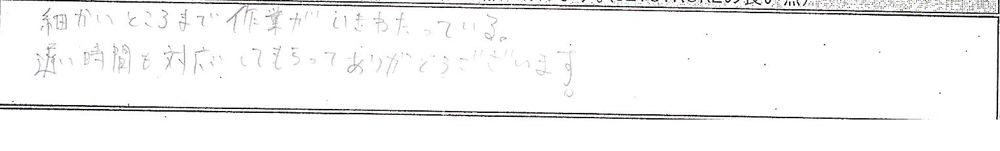 細かいところまで作業がいきわたっている。
遅い時間も対応してもらってありがとうございます。